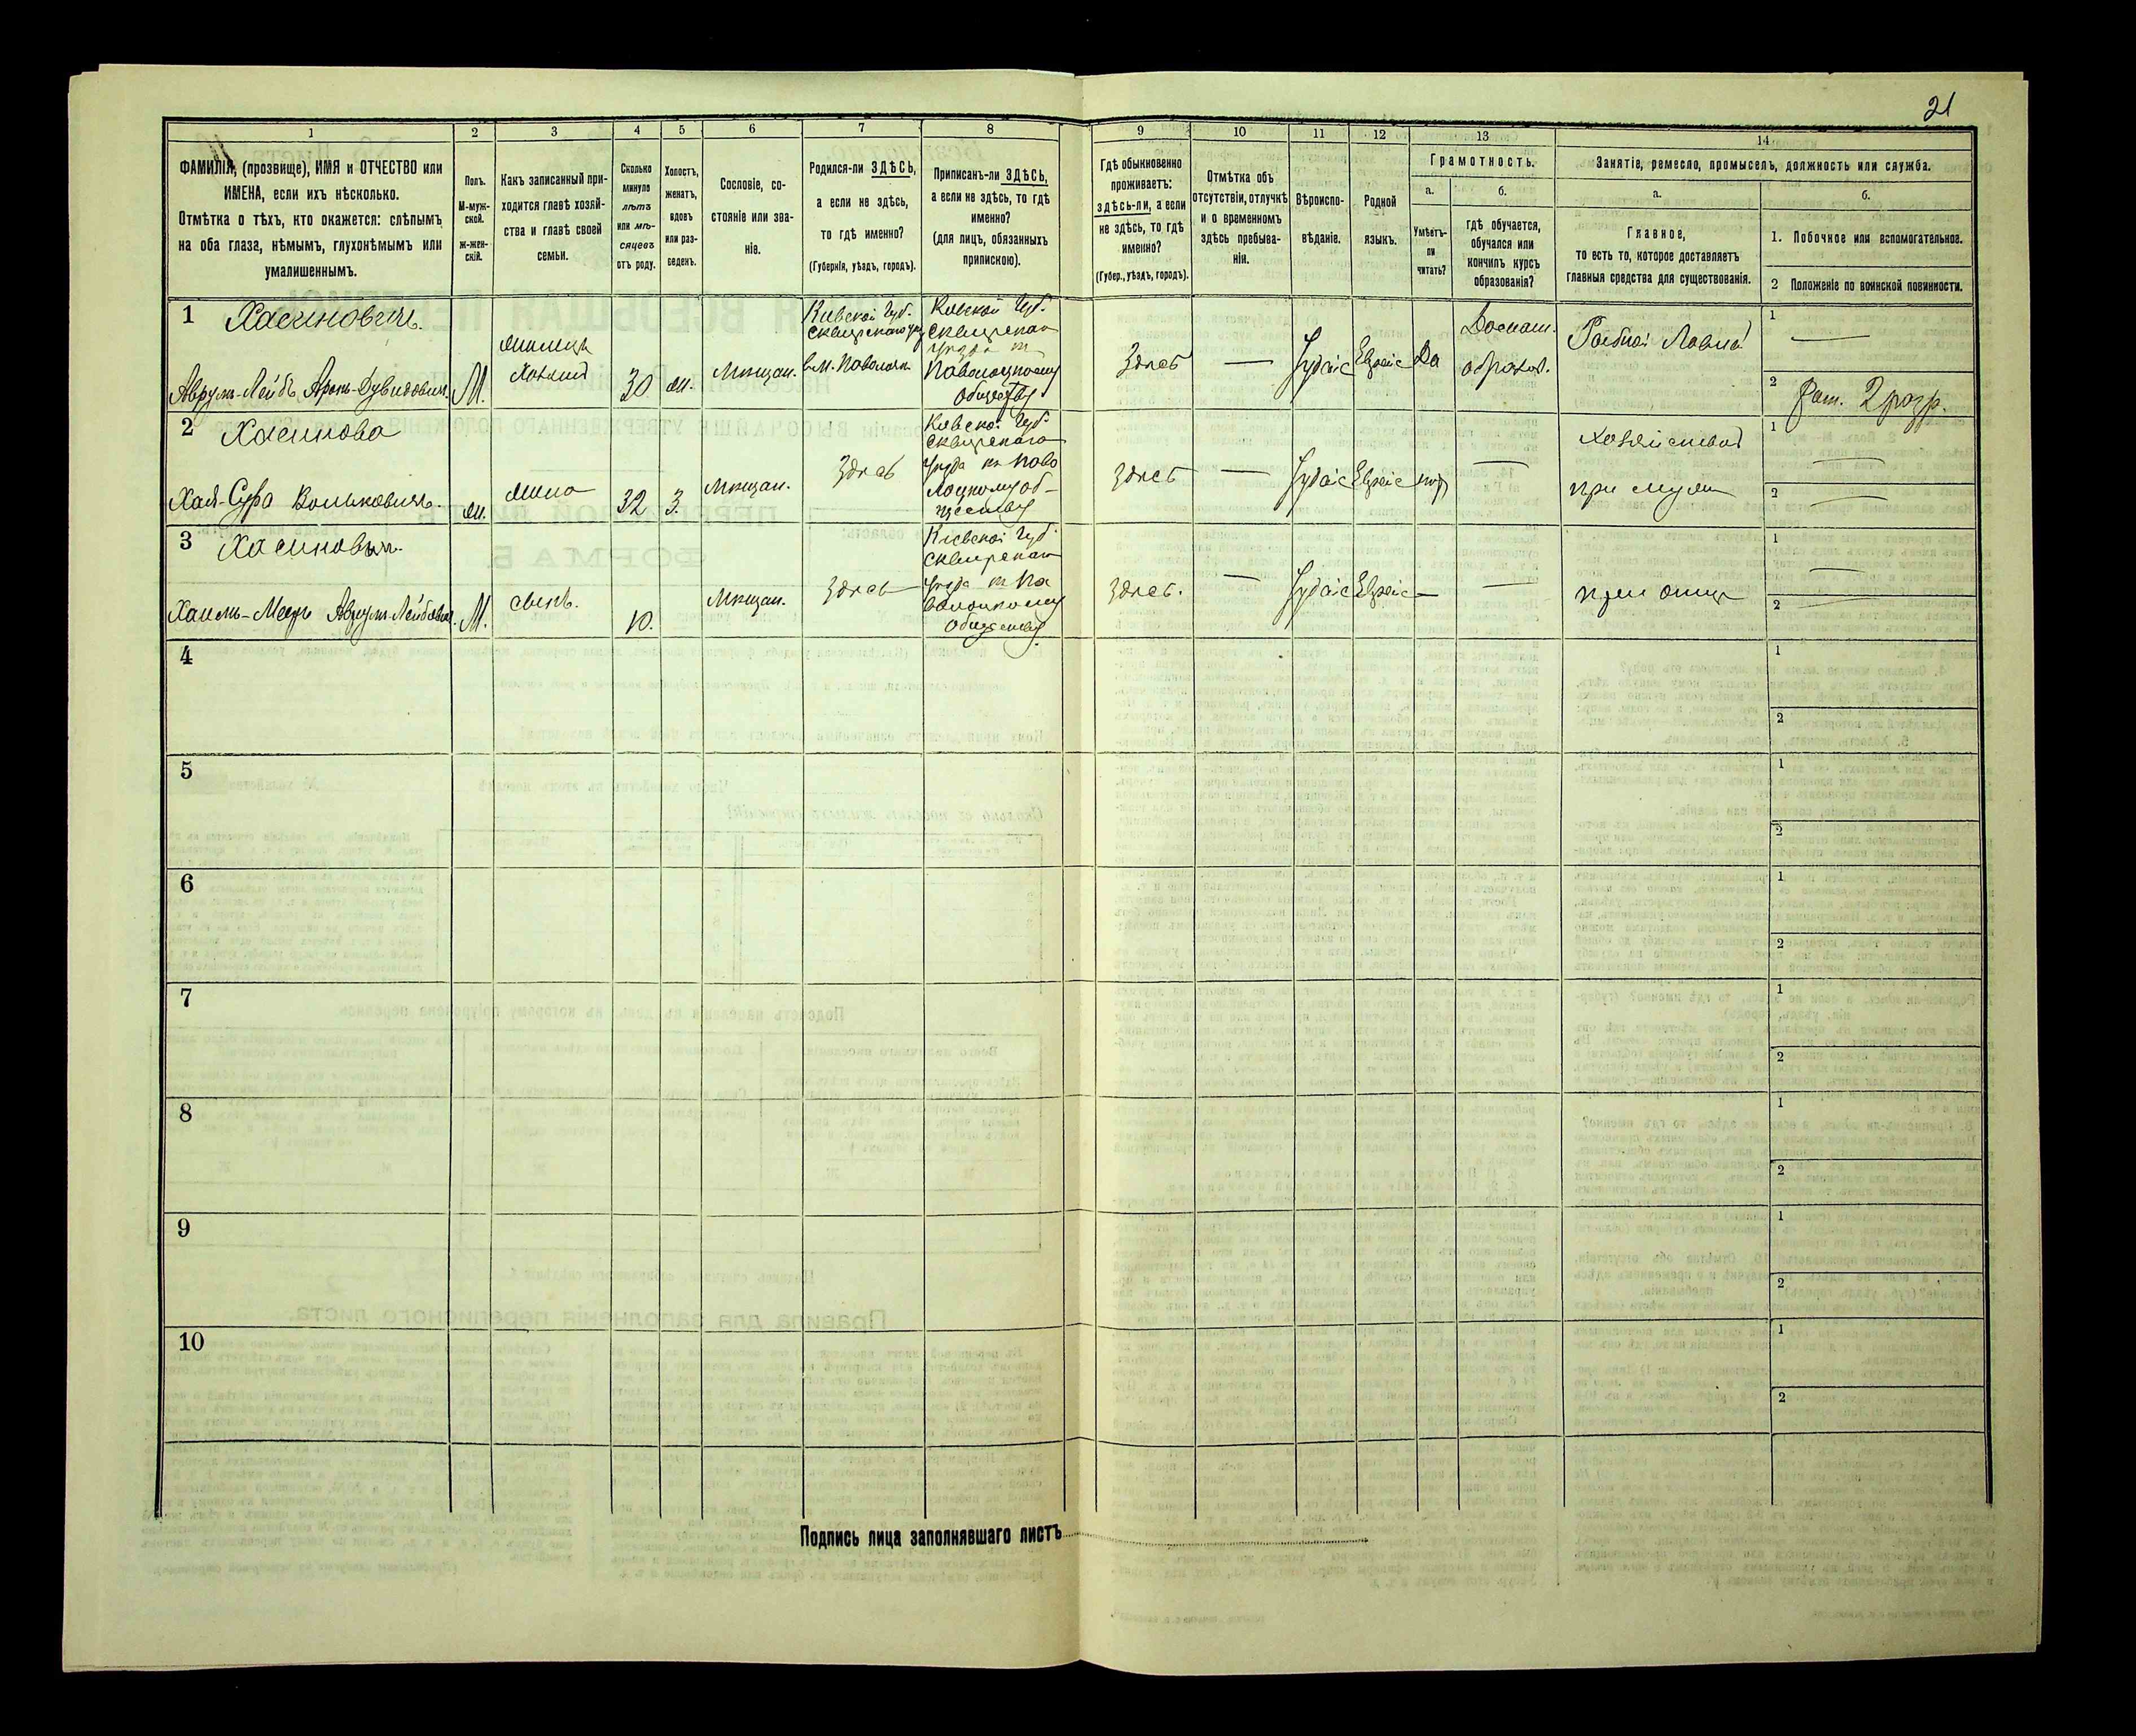 21
1
2
3
4
5
6
7
8
9
10
11
12
13
14
ФАМИЛІЯ, (прозвище), ИМЯ и ОТЧЕСТВО или
ИМЕНА, если ихъ нѣсколько.
Отмѣтка о тѣхъ, кто окажется: слѣпымъ
на оба глаза, нѣмымъ, глухонѣмымъ или
умалишеннымъ.
Полъ.
М-муж-
ской.
ж-жен-
скій.
Какъ записанный при-
ходится главѣ хозяй-
ства и главѣ своей
семьи.
Сколько
минуло
лѣтъ
или мѣ-
сяцевъ
отъ роду.
Холостъ,
женатъ,
вдовъ
или раз-
веденъ.
Сословіе, со-
стояніе или зва-
ніе.
Родился-ли ЗДѢСЬ,
а если не здѣсь,
то гдѣ именно?
(Губернія, уѣздъ, городъ).
Приписанъ-ли ЗДѢСЬ,
а если не здѣсь, то гдѣ
именно?
(для лицъ, обязанныхъ
припискою).
Гдѣ обыкновенно
проживаетъ:
здѣсь-ли, а если
не здѣсь, то гдѣ
именно?
(Губер., уѣздъ, городъ).
Отмѣтка объ
отсутствіи, отлучкѣ
и о временномъ
здѣсь пребыва-
ніи.
Вѣроиспо-
вѣданіе.
Родной
языкъ.
Грамотность.
а.
Умѣетъ-
ли
читать?
б.
Гдѣ обучается,
обучался или
кончилъ курсъ
образованія?
Занятіе, ремесло, промыселъ, должность или служба.
а.
Главное,
то есть то, которое доставляетъ
главныя средства для существованія.
б.
1. Побочное или вспомогательное.
2 Положеніе по воинской повинности.
1
Хасиновичъ.
Аврумъ-Лейбъ Аронъ-Дувидовичъ
М.
30
Мѣщан.
Кіевской Губ.
Сквирскаго
в м. Паволочь
Кіевской Губ.
Сквирскаго
уѣзда къ
Паволоцкому
обществу
Здѣсь
Іудаис
Еврейс
Да
Домаш.
образов.
1
2
Рат. 2 разр.
2
Хасинова
жена
32
З.
Мѣщан.
Здѣсь
Кіевской Губ.
Сквирскаго
уѣзда къ Паво
лоцкому об-
ществу
Здѣсь
Іудаис
Еврейс
при мужѣ
1
2
3
Хасиновичъ.
М.
сынъ.
10.
Мѣщан.
Здѣсь
Кіевской Губ.
Сквирскаго
уѣзда къ Па
волоцкому
обществу
Здѣсь.
Іудаис
Еврейс
при отцѣ
1
2
4
1
2
5
1
2
6
1
2
7
1
2
8
1
2
9
1
2
10
1
2
Подпись лица заполнявшаго листъ